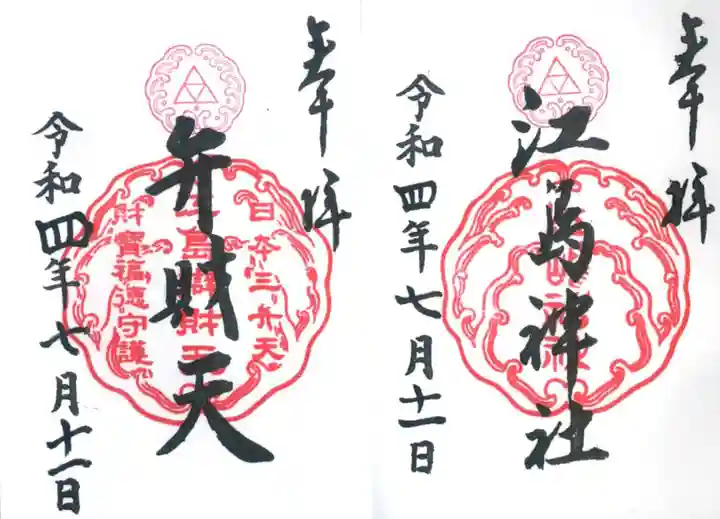 奉拝
日本三弁天
弁財天
財寶福徳守護
令和四年七月十一日
奉拝
江島神社
令和四年七月十一日